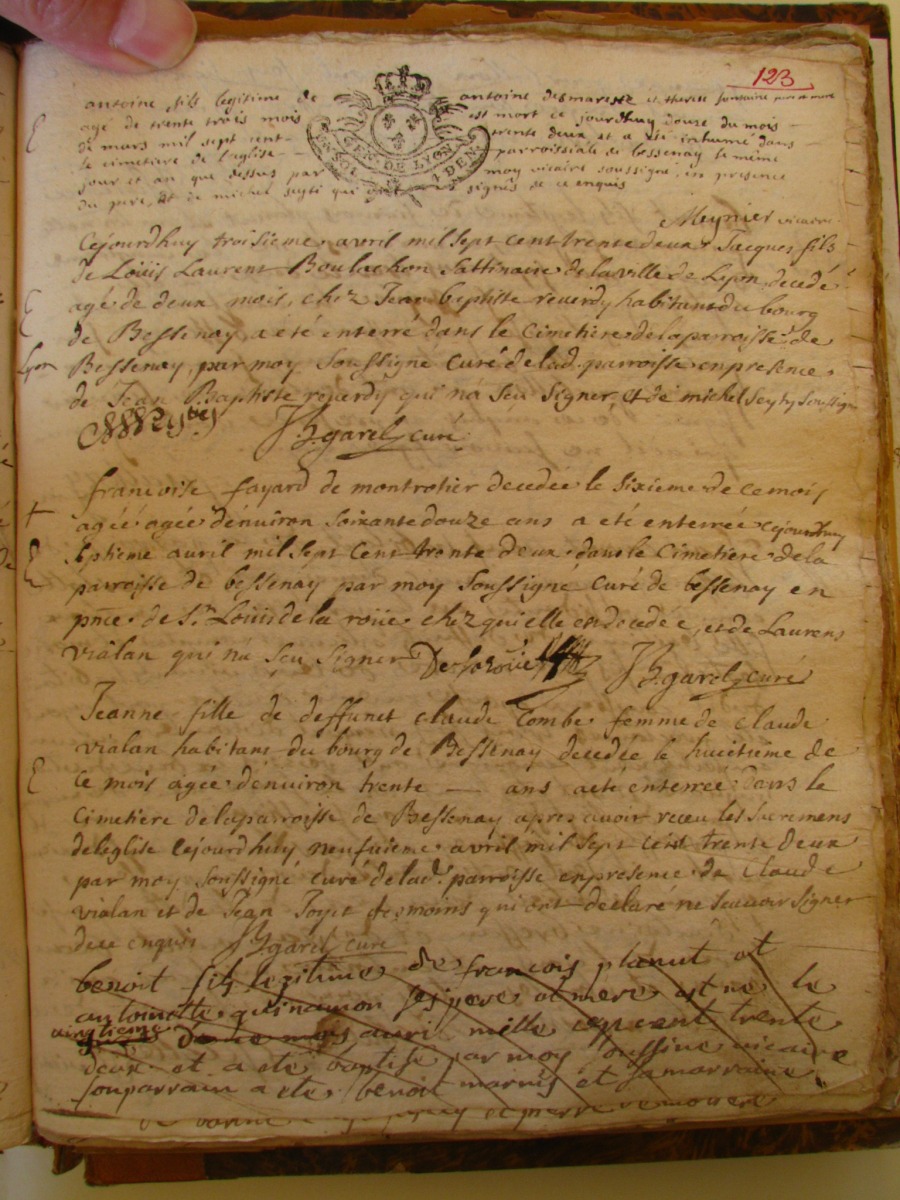 123
antoine fils legitime de antoine desmarestz et therese fontaine pere et mere
agé de trente trois mois est mort ce jourdhuy douze du mois
de mars mil sept cent trente deux et a eté inhumé dans
le cimetiere de l'aglise parroissiale de bessenay le même
jour et an que dessus par moy vicaire soussigné, en presence
du pere, et de michel seyti qui ont signés de ce enquis
GEN. DE LYON
Meynier vicaire
Cejourdhuy troisieme avril mil sept cent trente deux Jacques fils
de Loüis Laurent Boulachon sattinaire de la ville de Lyon, decedé
agé de deux mois, chez Jean baptiste reverdy habitant du bourg
de Bessenay, a eté enterré dans le Cimetiere de la parroisse de
Lyon
Bessenay, par moy soussigné Curé de lad. parroisse en presence
de Jean Baptiste reverdy qui n'a sçu signer et de michel Seyty soussigné
JB garel curé
francoise fayard de montrotier decedée le sixieme de ce mois
agée agée d'enuiron soixante douze ans a eté enterrée cejourdhuy
septieme avril mil sept cent trente deux dans le Cimetiere de la
parroisse de bessenay par moy soussigné Curé de bessenay en
pnce. de Sr. Loüis de la roüe chez qui elle est decedée, et de Laurens
vialan qui n'a sçu signer De la roüe JB garel curé
Jeanne fille de deffunct claude Combe femme de claude
vialan habitans du bourg de Bessenay decedée le huictieme de
ce mois agée d'enuiron trente — ans a eté enterrée dans le
Cimetiere de la parroisse de Bessenay apres auoir receu les sacremens
de leglise cejourdhuy neufuieme avril mil sept cent trente deux
par moy soussigné curé de lad. parroisse en presence de Claude
vialan et de Jean temoins qui ont declaré ne scauoir signer
de ce enquis JB garel curé
benoit fils legitime de françois planut et
antoinette quinamon ses pere et mere est ne le
vingtieme de ce mois auri mille sepcent trente
deux et a eté baptise par moy soussine vicaire
son parrain a ete benoit et sa marraine
et pierre